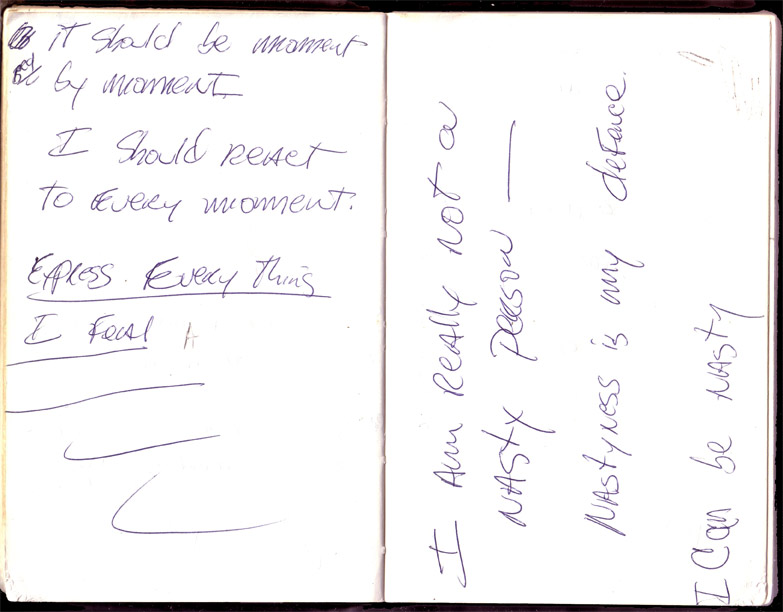 it should be moment
by moment
I should react
to every moment.
Express. Every thing
I Feeal
I am Really not a
Nasty person —
Nastyness is my defance.
I can be Nasty